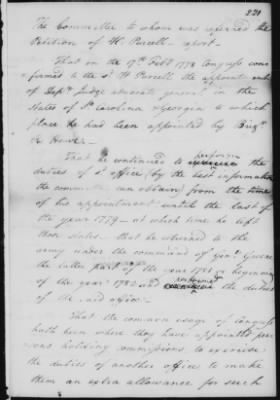 221
The Committee to whom was referred the
Petition of H. Purcell – report –
That on the 17th Feby 1778 Congress con
firmed to the sd H Purcell the appointment
of Depy Judge advocate general in the
States of So Carolina Georgia to which
place he had been appointed by Brigr
Howe –
That he continued to exercise perform the
duties of sd office (by the best information
the committee can obtain) from the time
of his appointment until the last of
the year 1779 – at which time he left
those States – that he returned to the
army under the command of Genl Greene
the latter part of the year 1781 beginning
of the year 1782 and performed the duties
of the said office –
That the common usage of Congress
hath been where they have appointed per
sons holding commissions, to exercise
the duties of another office to make
them an extra allowance for such